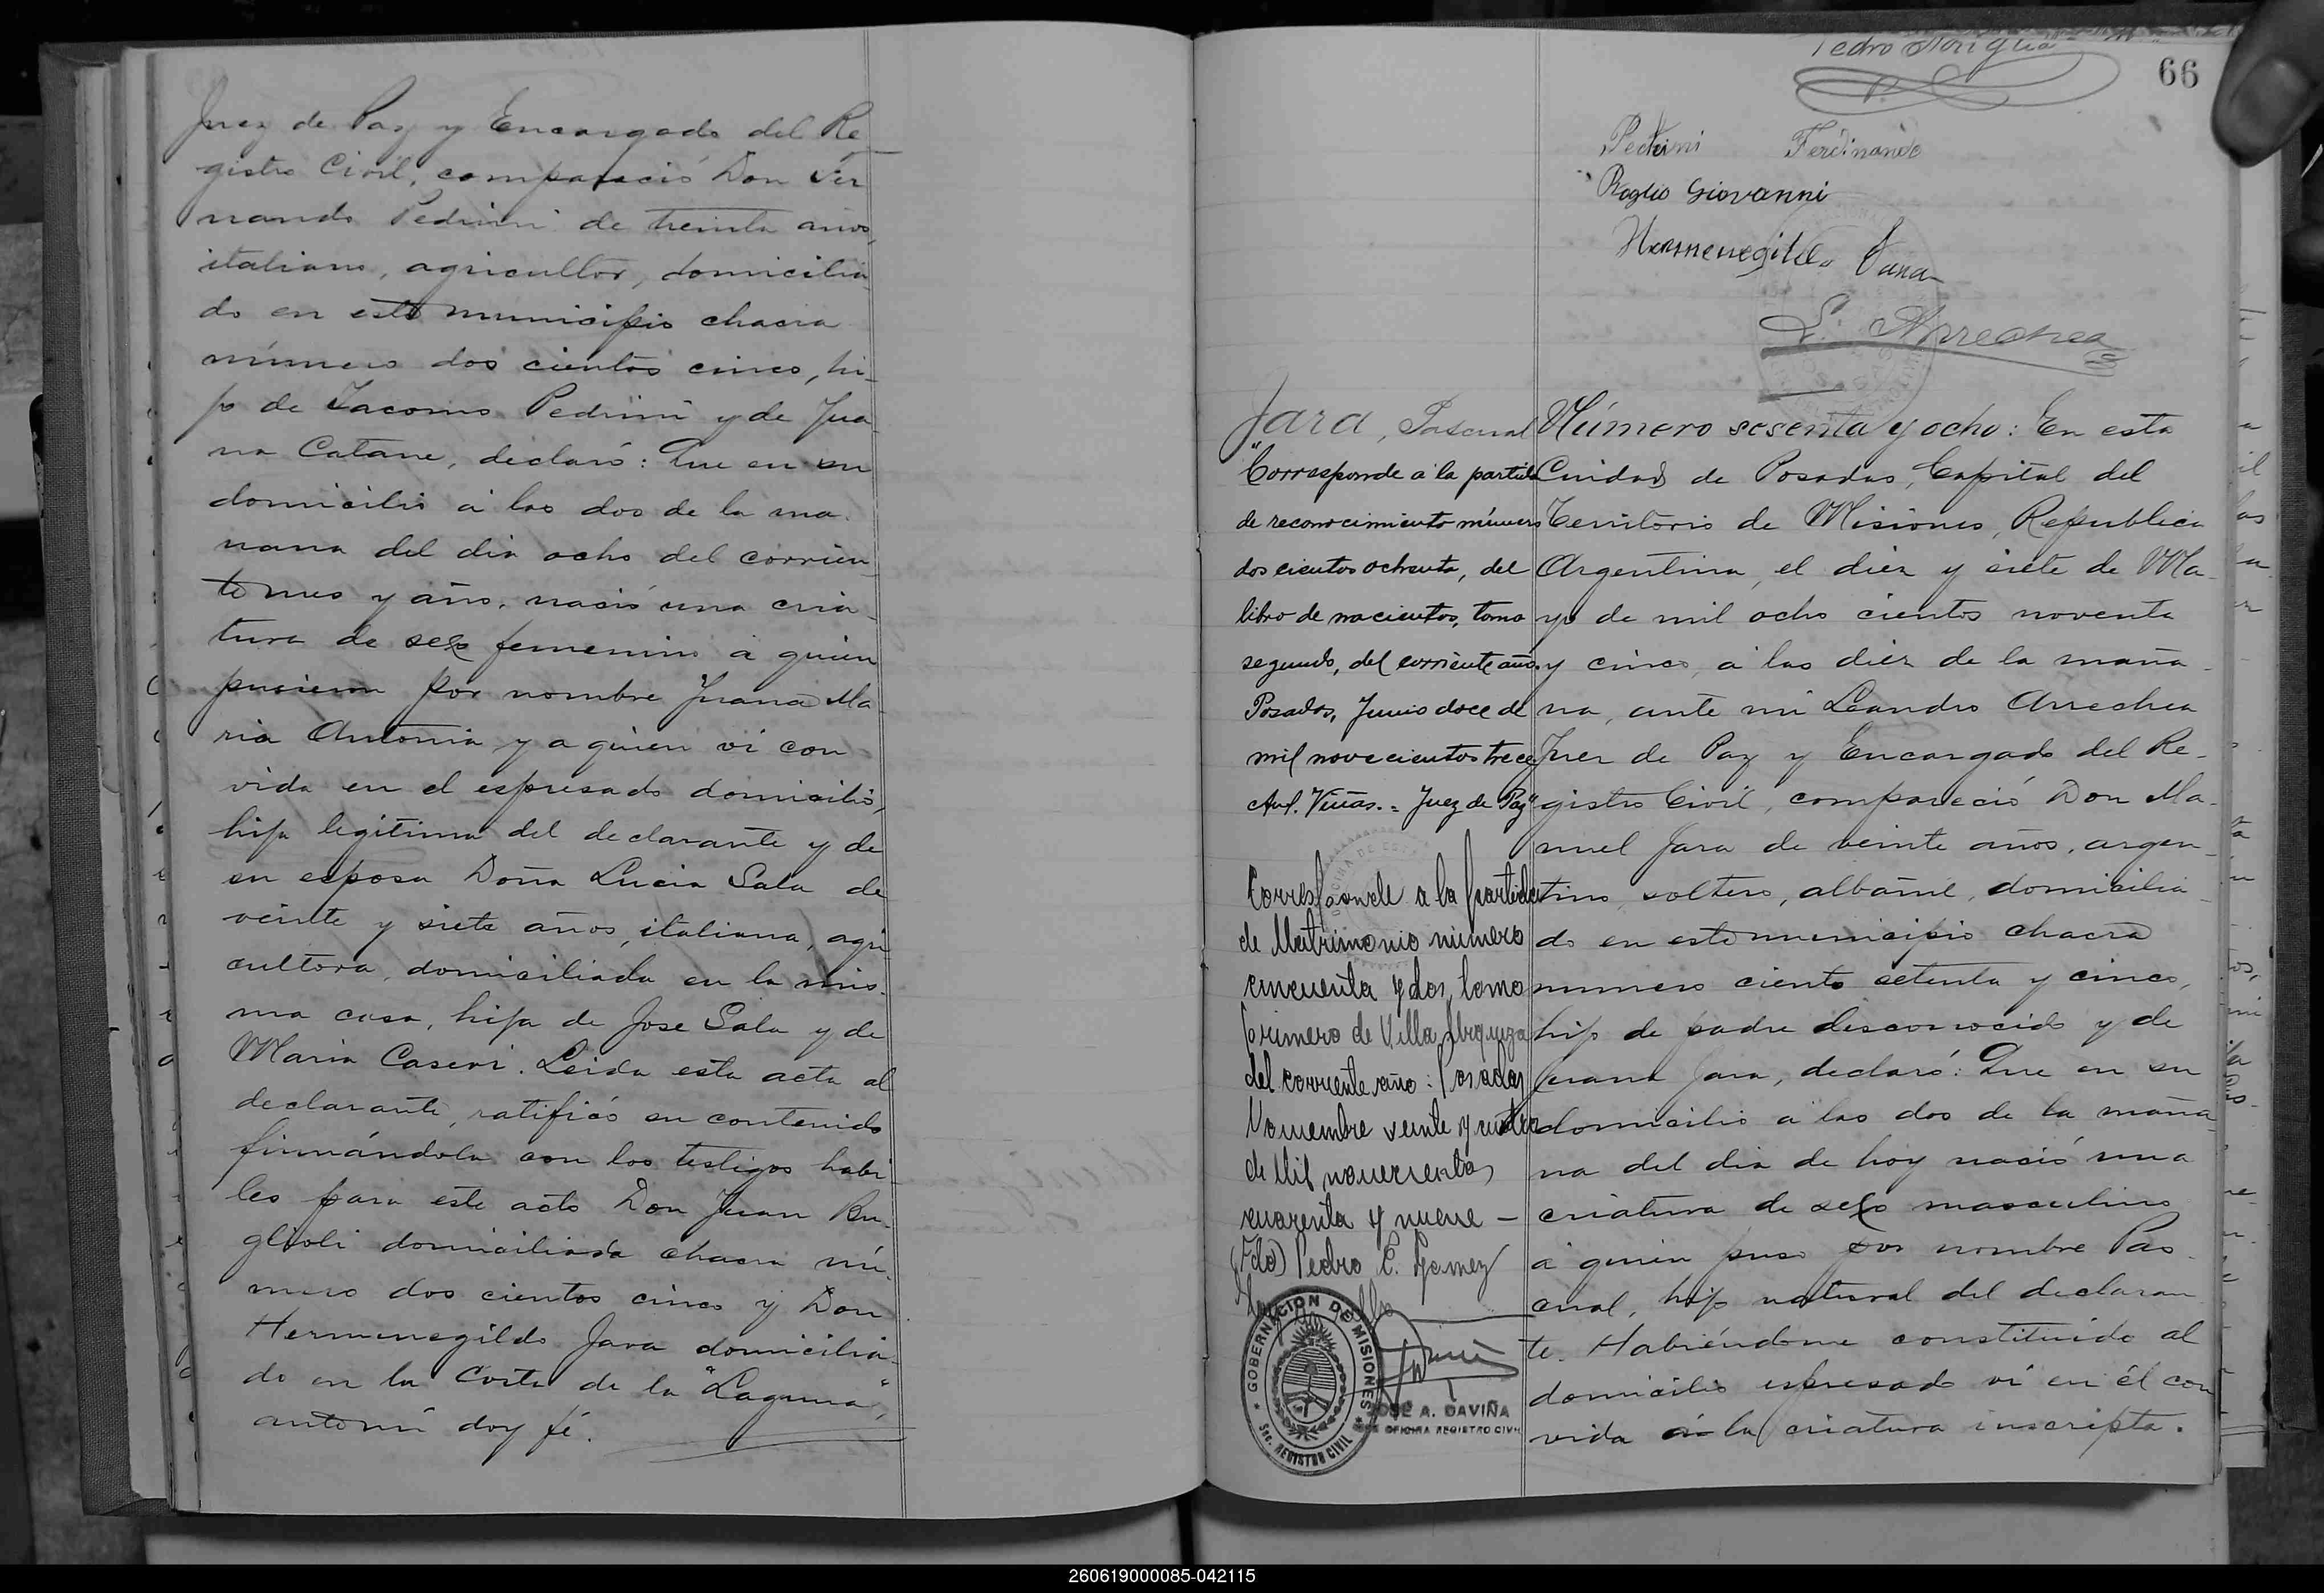 Juez de Paz y Encargado del Re
gistro Civil, compareció Don Fer
nando Pedrini de treinta años,
italiano, agricultor, domicilia
do en este municipio chacra
número dos cientos cinco, hi-
jo de Iacomo Pedrini y de Jua
na Catane, declaró: Que en su
domicilio á las dos de la ma
ñana del dia ocho del corrien
te mes y año, nació una cria
tura de sexo femenino á quien
pusieron por nombre Juana Ma
ria Antonia y a quien vi con
vida en el espresado domicilio,
hija legitima del declarante y de
su esposa Doña Lucia Sala de
veinte y siete años, italiana, agri
cultora, domiciliada en la mis-
ma casa, hija de Jose Sala y de
Maria Caseri. Leida esta acta al
declarante, ratificó su contenido
firmándola con los testigos habi
les para este acto Don Juan Bu-
glioli domiciliado chacra nú-
mero dos cientos cinco y Don
Hermenegildo Jara domicilia-
do en la Costa de la "Laguna",
ante mi doy fé.
Pedro
66
Pedrini Ferdinando
Roglio Giovanni
Hermenegildo Jara
L. Arrechea
Jara, Pascual
"Corresponde a la partida
de reconocimiento número
doscientos ochenta, del
libro de nacientos, tomo
segundo, del corriente año.
Posadas, Junio doce de
mil novecientos trece
Avl. Viñas. = Juez de Paz"
Corresponde a la partida
de Matrimonio número
cincuenta y dos, tomo
primero de Villa Urquiza
del corriente año: Posadas
Noviembre veinte y cuatro
de Mil novecientos
cuarenta y nueve —
(Fdo) Pedro C. Gomez
GOBERNACION DE MISIONES
Sec. REGISTRO CIVIL
JOSE A. DAVIÑA
JEFE OFICINA REGISTRO CIVIL
Número sesenta y ocho: En esta
Cuidad de Posadas, Capital del
Territorio de Misiones, Republica
Argentina, el diez y siete de Ma-
yo de mil ocho cientos noventa
y cinco, á las diez de la maña-
na, ante mi Leandro Arrechea
Juez de Paz y Encargado del Re-
gistro Civil, compareció Don Ma-
nuel Jara de veinte años, argen-
tino, soltero, albañil, domicilia-
do en este municipio chacra
numero ciento setenta y cinco,
hijo de padre desconocido y de
Juana Jara, declaró: Que en su
domicilio á las dos de la maña-
na del dia de hoy nació una
criatura de sexo masculino
á quien puso por nombre Pas-
cual, hijo natural del declaran
te. Habiéndome constituido al
domicilio espresado vi en él con
vida á la criatura inscripta.
260619000085-042115